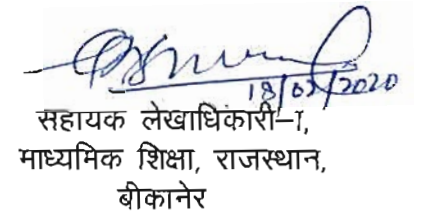 18/02/2020
सहायक लेखाधिकारी–I,
माध्यमिक शिक्षा, राजस्थान,
बीकानेर